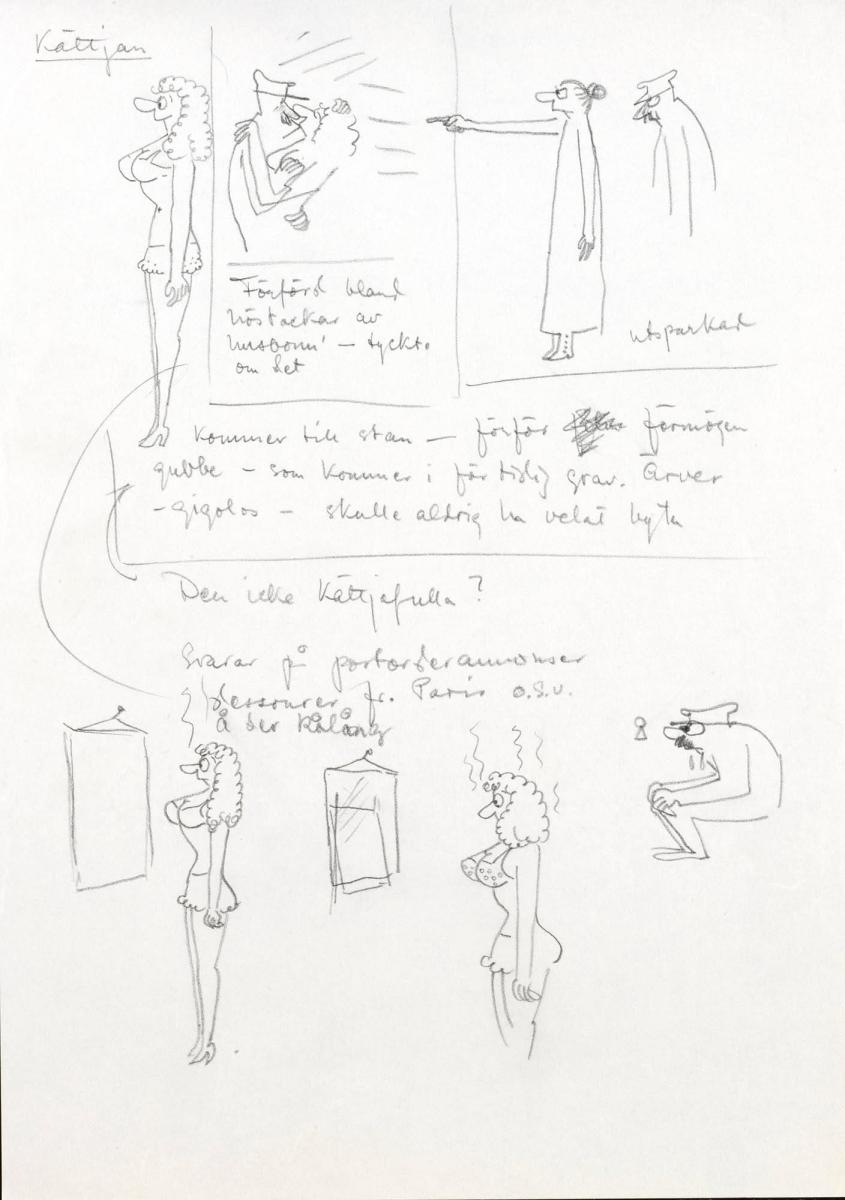 Kättjan
Förförd bland
höstackar av
husbonn' – tyckte
om det
utsparkad
Kommer till stan – förför förmögen
gubbe – som kommer i för tidig grav. Ärver
– gigolos – skulle aldrig ha velat byta
Den icke Kättjefulla?
Svarar på postorderannonser
dessouer fr. Paris o.s.v.
å der